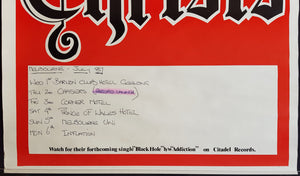 Christs
MELBOURNE - JULY 87
WED 1st BARVEN CLUB HOTEL GEELONG
THU 2nd CHASERS (RECORD LAUNCH)
FRI 3rd CORNER HOTEL
SAT 4th PRINCE OF WALES HOTEL
SUN 5th MELBOURNE UNI
MON 6th INFLATION
Watch for their forthcoming single "Black Hole" b/w "Addiction" on Citadel Records.